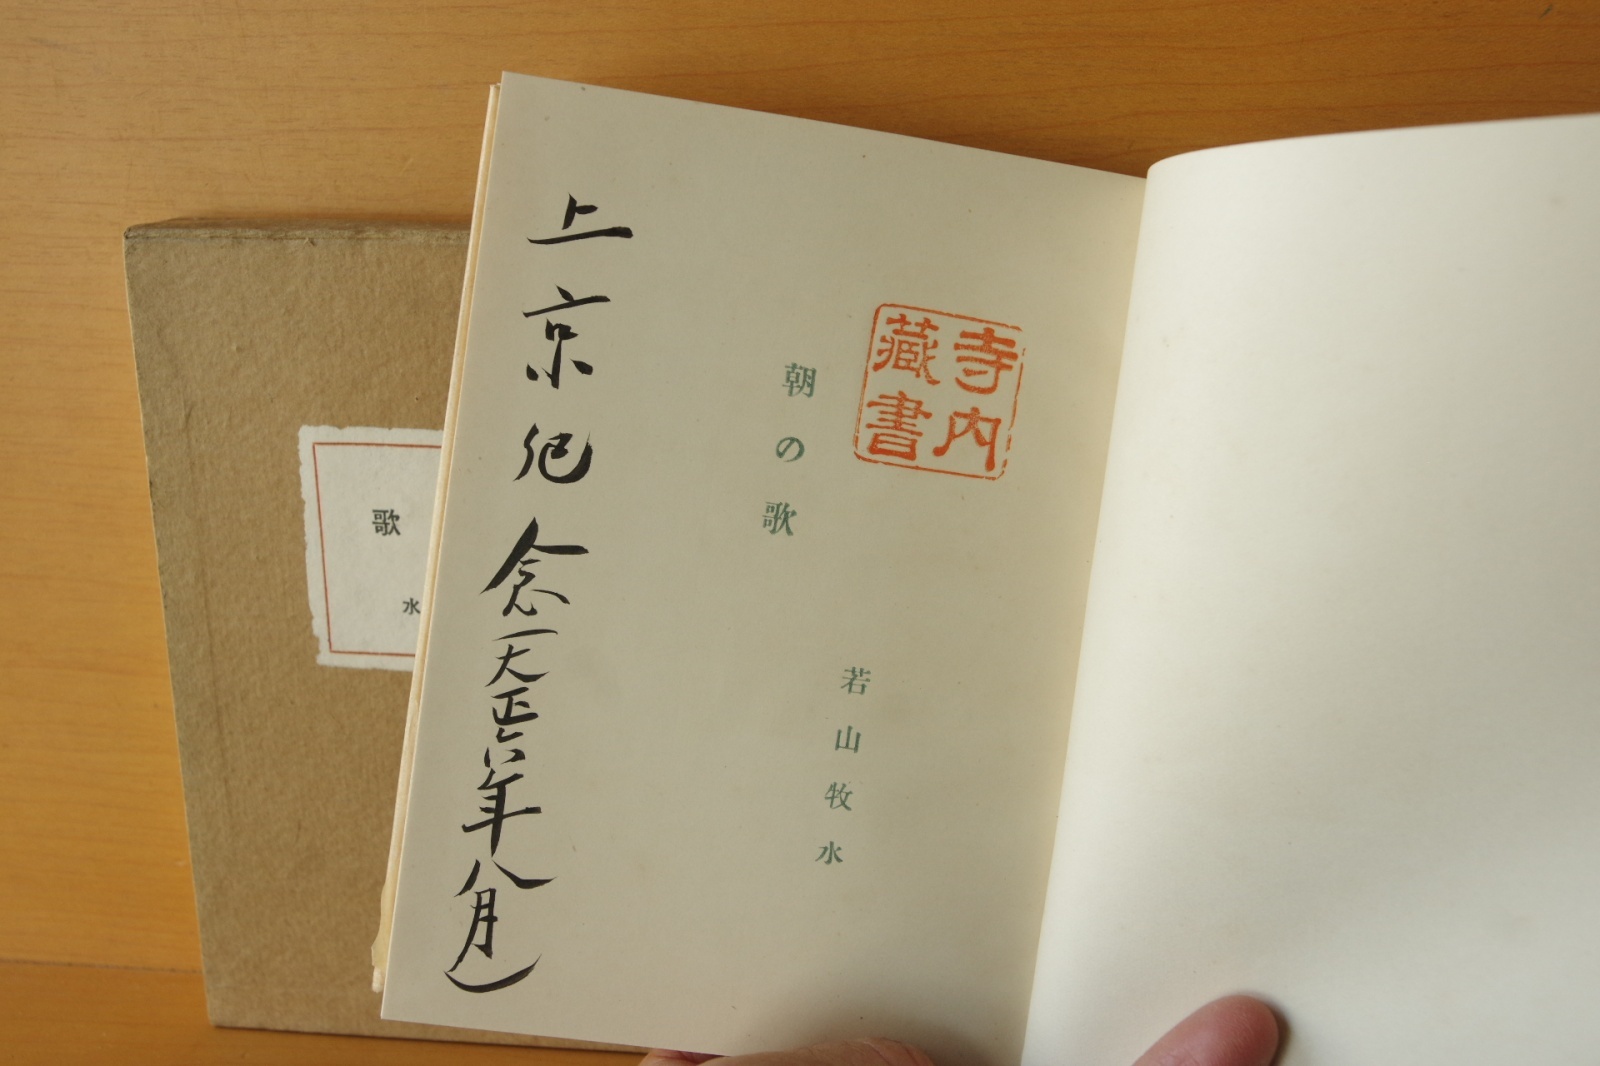 寺内
藏書
朝の歌
若山牧水
上京紀念(大正六年八月)
歌
水